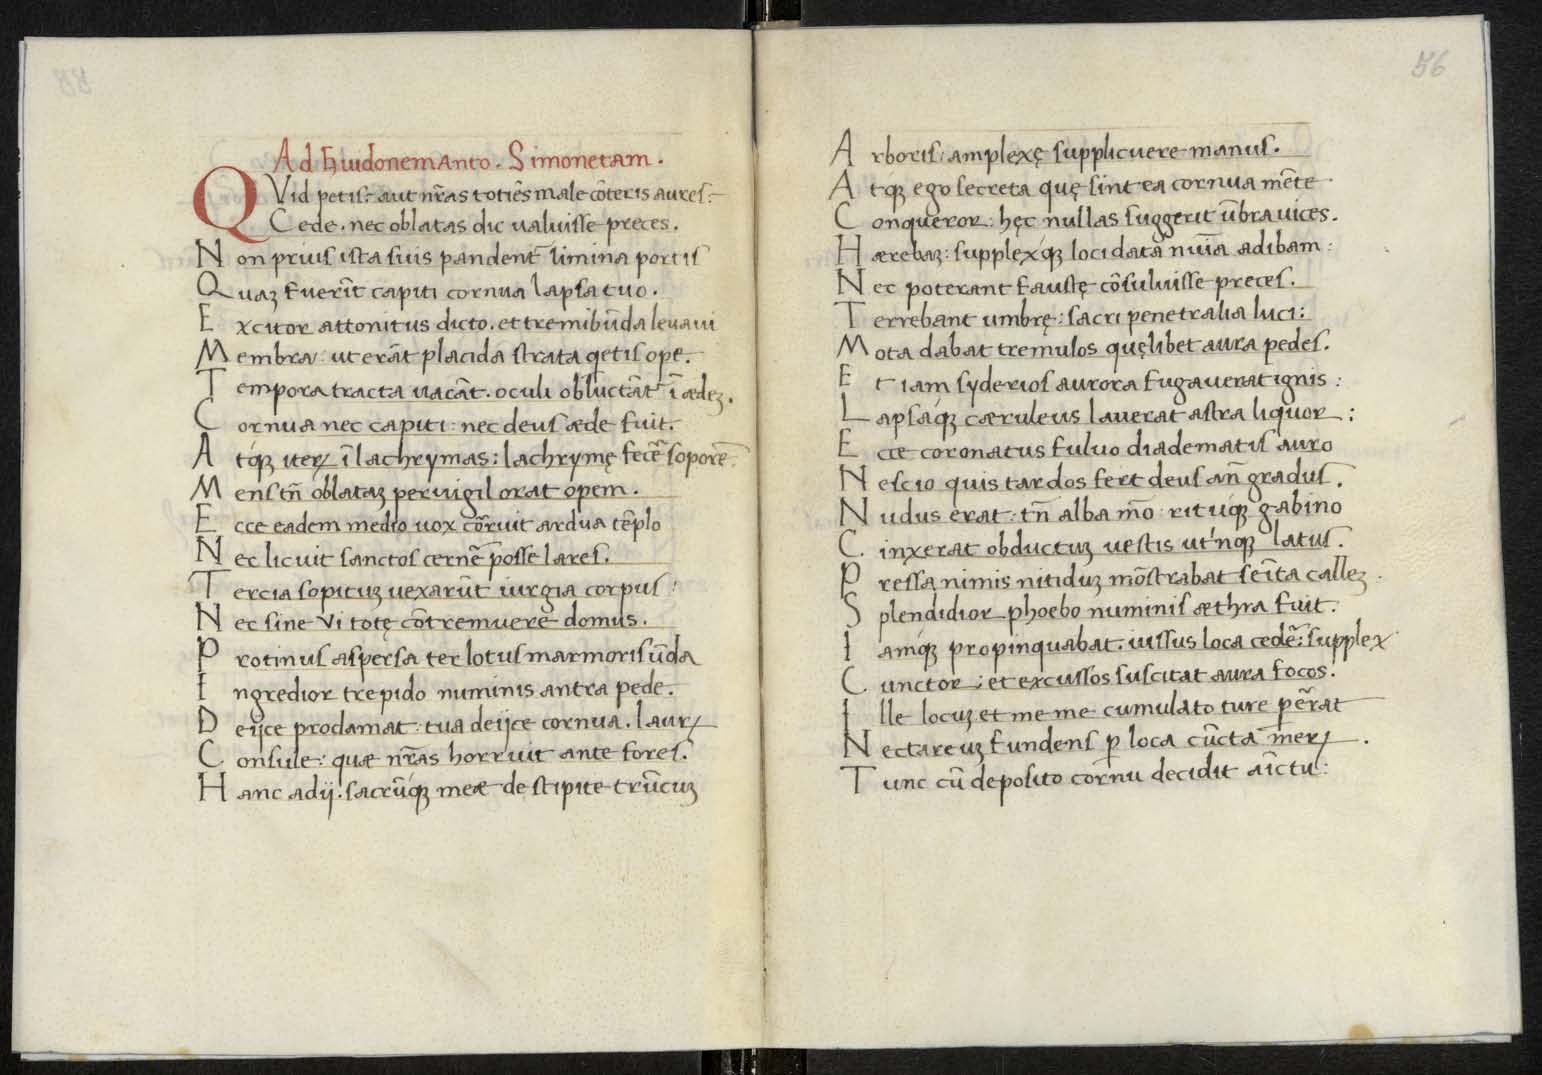 Ad Guidonemanto. Simonetam.
QVid petis: aut nr̃as totiẽs male cõteris aures:
Cede. nec oblatas dic valuisse preces.
Non prius ista suis pandent̃ limina portis
Quaꝫ fuerĩt capiti cornua lapsa tuo.
Excitor attonitus dicto. et tremibũda leuaui
Membra: ut erãt placida strata qetis ope.
Tempora tracta uacãt. oculi obluctãt ĩ ædeꝫ.
Cornua nec capiti: nec deus æde fuit.
Atqꝫ iteꝝ ĩ lachrymas: lachrymę fecẽ soporẽ.
Mens tñ oblataꝫ peruigil orat opem.
Ecce eadem medio uox cõrruit ardua tẽplo
Nec licuit sanctos cernẽ posse lares.
Tercia sopituꝫ uexarũt iurgia corpus:
Nec sine vi totę cõtremuere domus.
Protinus aspersa ter lotus marmoris ũda
Ingredior trepido numinis antra pede.
Deijce proclamat: tua deijce cornua. lauꝝ
Consule: quæ nr̃as horruit ante fores.
Hanc adij. sacrũqꝫ meæ de stipite trũcuꝫ
56
Arboris: amplexę supplicuere manus.
Atqꝫ ego secreta quę sint ea cornua mẽte
Conqueror: hęc nullas suggerit ũbra uices.
Hærebaꝫ: supplexqꝫ loci data nuĩa adibam:
Nec poterant faustę cõsuluisse preces.
Terrebant umbrę: sacri penetralia luci:
Mota dabat tremulos quęlibet aura pedes.
Et iam syderios aurora fugauerat ignis:
Lapsaqꝫ cæruleus lauerat astra liquor:
Ecce coronatus fuluo diadematis auro
Nescio quis tardos fert deus añ gradus.
Nudus erat: tñ alba mõ: rituqꝫ gabino
Cinxerat obductuꝫ uestis utrĩqꝫ latus.
Pressa nimis nitiduꝫ mõstrabat seĩta calleꝫ.
Splendidior phoebo numinis æthra fuit.
Iamqꝫ propinquabat. iussus loca cedẽ: supplex
Cunctor: et excussos suscitat aura focos.
Ille locuꝫ et me me cumulato ture pẽrat
Nectareuꝫ fundens ꝑ loca cũcta meꝝ.
Tunc cũ deposito cornu decidit aĩctu: